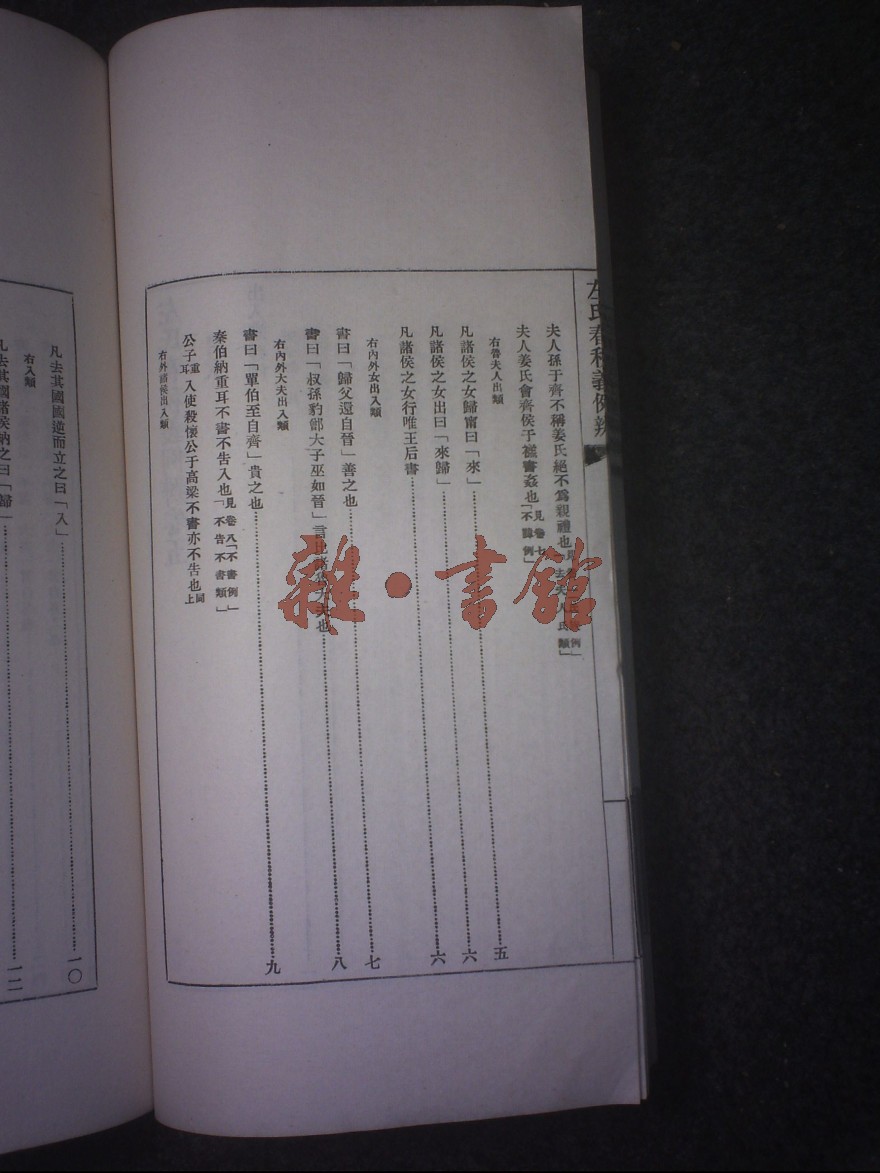 左氏春秋義例辨
夫人孫于齊不稱姜氏絕不爲親禮也
夫人姜氏會齊侯于禚書姦也「見卷七「不諱例」
右魯夫人出類
凡諸侯之女歸甯曰「來」 五
凡諸侯之女出曰「來歸」 六
凡諸侯之女行唯王后書 六
右內外女出入類
書曰「歸父還自晉」善之也 七
書曰「叔孫豹鄫大子巫如晉」言比諸魯大夫也 八
右內外大夫出入類
書曰「單伯至自齊」貴之也 九
秦伯納重耳不書不告入也見卷八「不書例」「不告不書類」
公子重耳入使殺懷公于高梁不書亦不告也同上
右外諸侯出入類
凡去其國國逆而立之曰「入」 一〇
右入類
凡去其國諸侯納之曰「歸」 一二
雜·書館